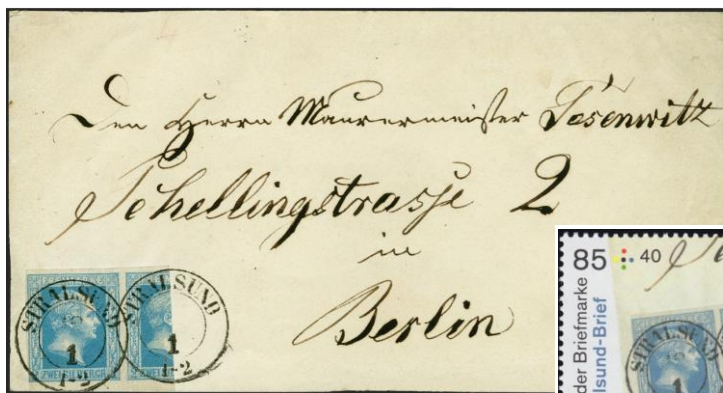 Den Herrn Maurermeister Tesenwitz
Schellingstrasse 2
in
Berlin
STRALSUND
1
1-2
STRALSUND
1
1-2
ZWEI SILBERGR.
85 40
der Briefmarke
lsund-Brief
STRALSUND
1